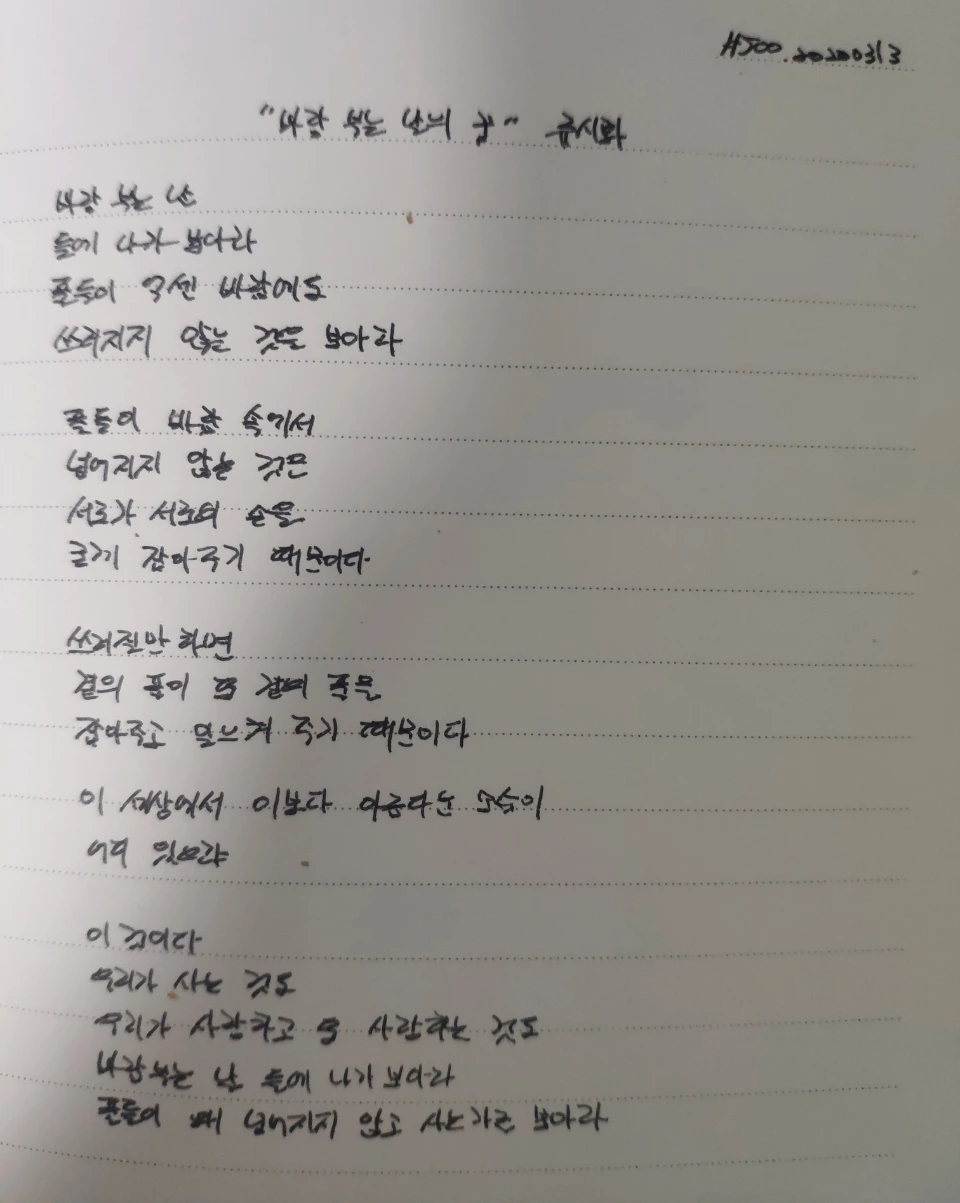 HJOO. 20200313
"바람 부는 날의 꿈" 류시화
바람 부는 날
들에 나가 보아라
풀들이 억센 바람에도
쓰러지지 않는 것을 보아라
풀들이 바람 속에서
넘어지지 않는 것은
서로가 서로의 손을
굳게 잡아주기 때문이다
쓰러질만 하면
곁의 풀이 또 곁의 풀을
잡아주고 일으켜 주기 때문이다
이 세상에서 이보다 아름다운 모습이
어디 있으랴
이 것이다
우리가 사는 것도
우리가 사랑하고 또 사랑하는 것도
바람부는 날 들에 나가 보아라
풀들이 왜 넘어지지 않고 사는가를 보아라